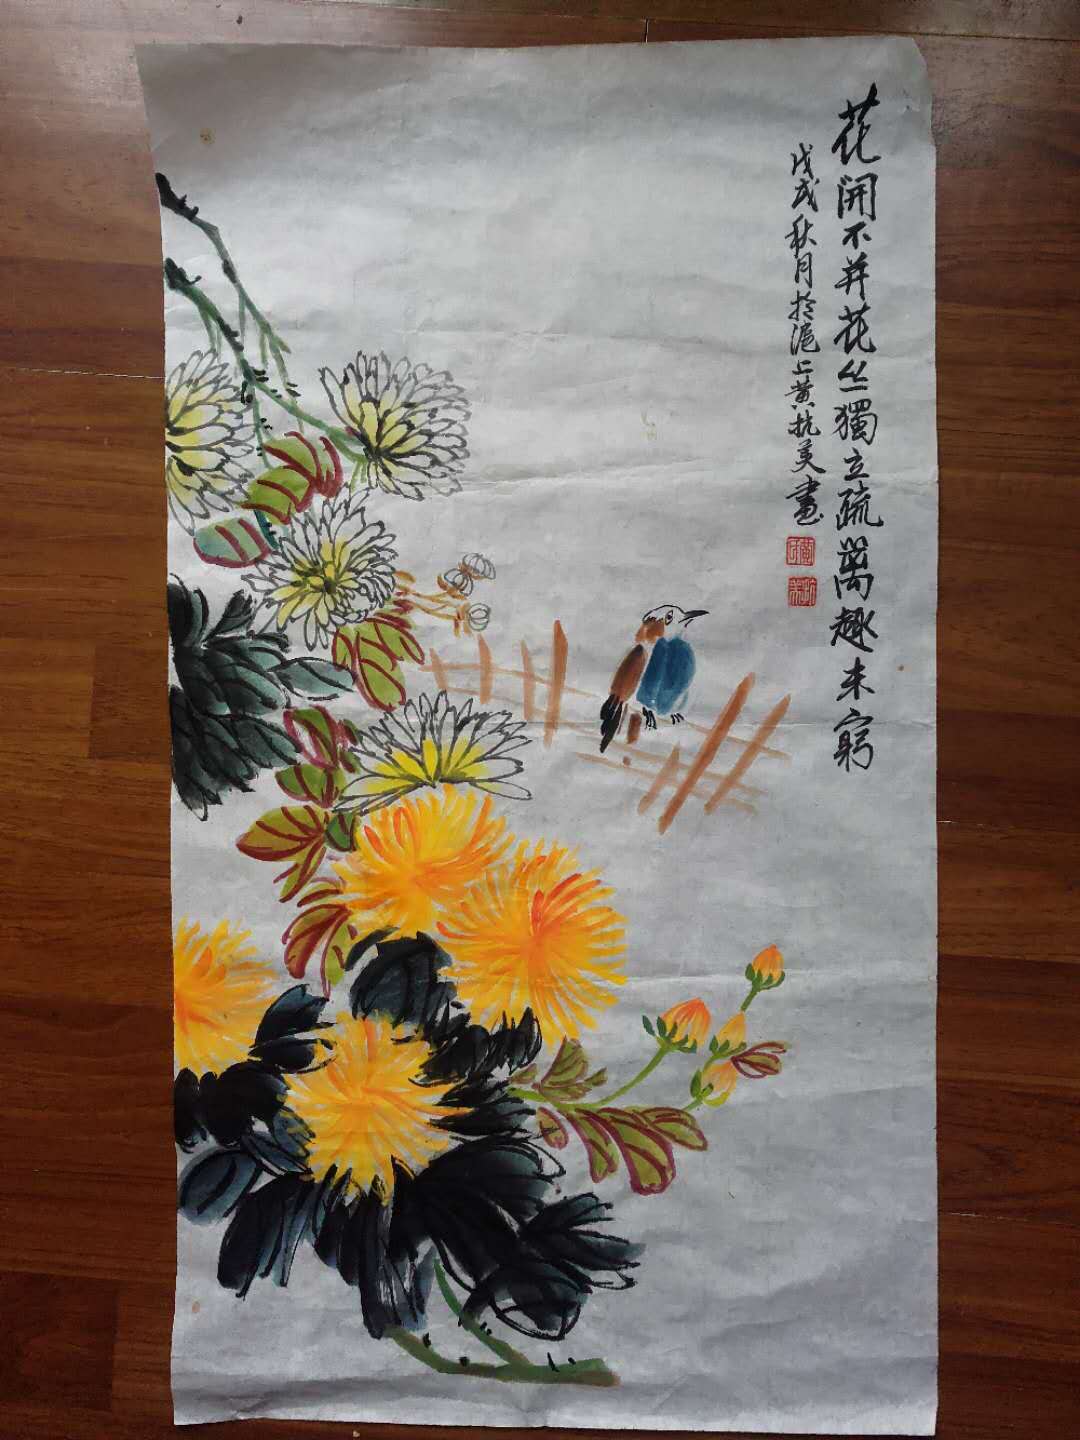 花開不并花丛獨立疏篱趣未窮
戊戌秋月扵滬上黄抗美畫